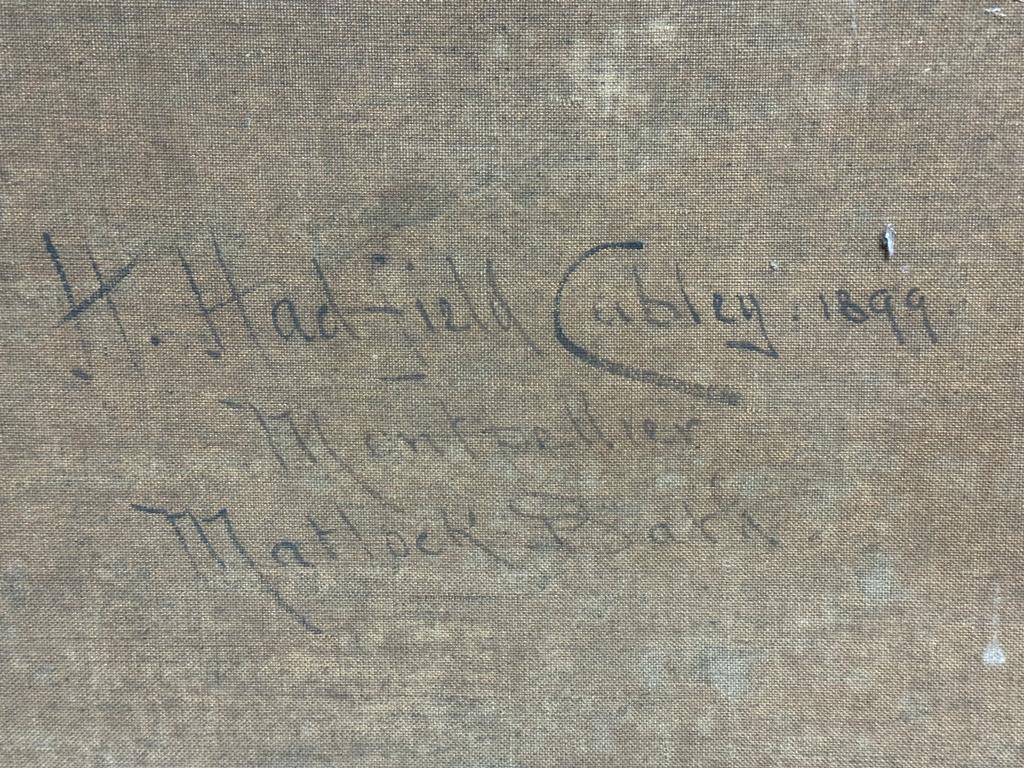 H. Hadfield Cubley. 1899.
Montpellier
Matlock Bath.